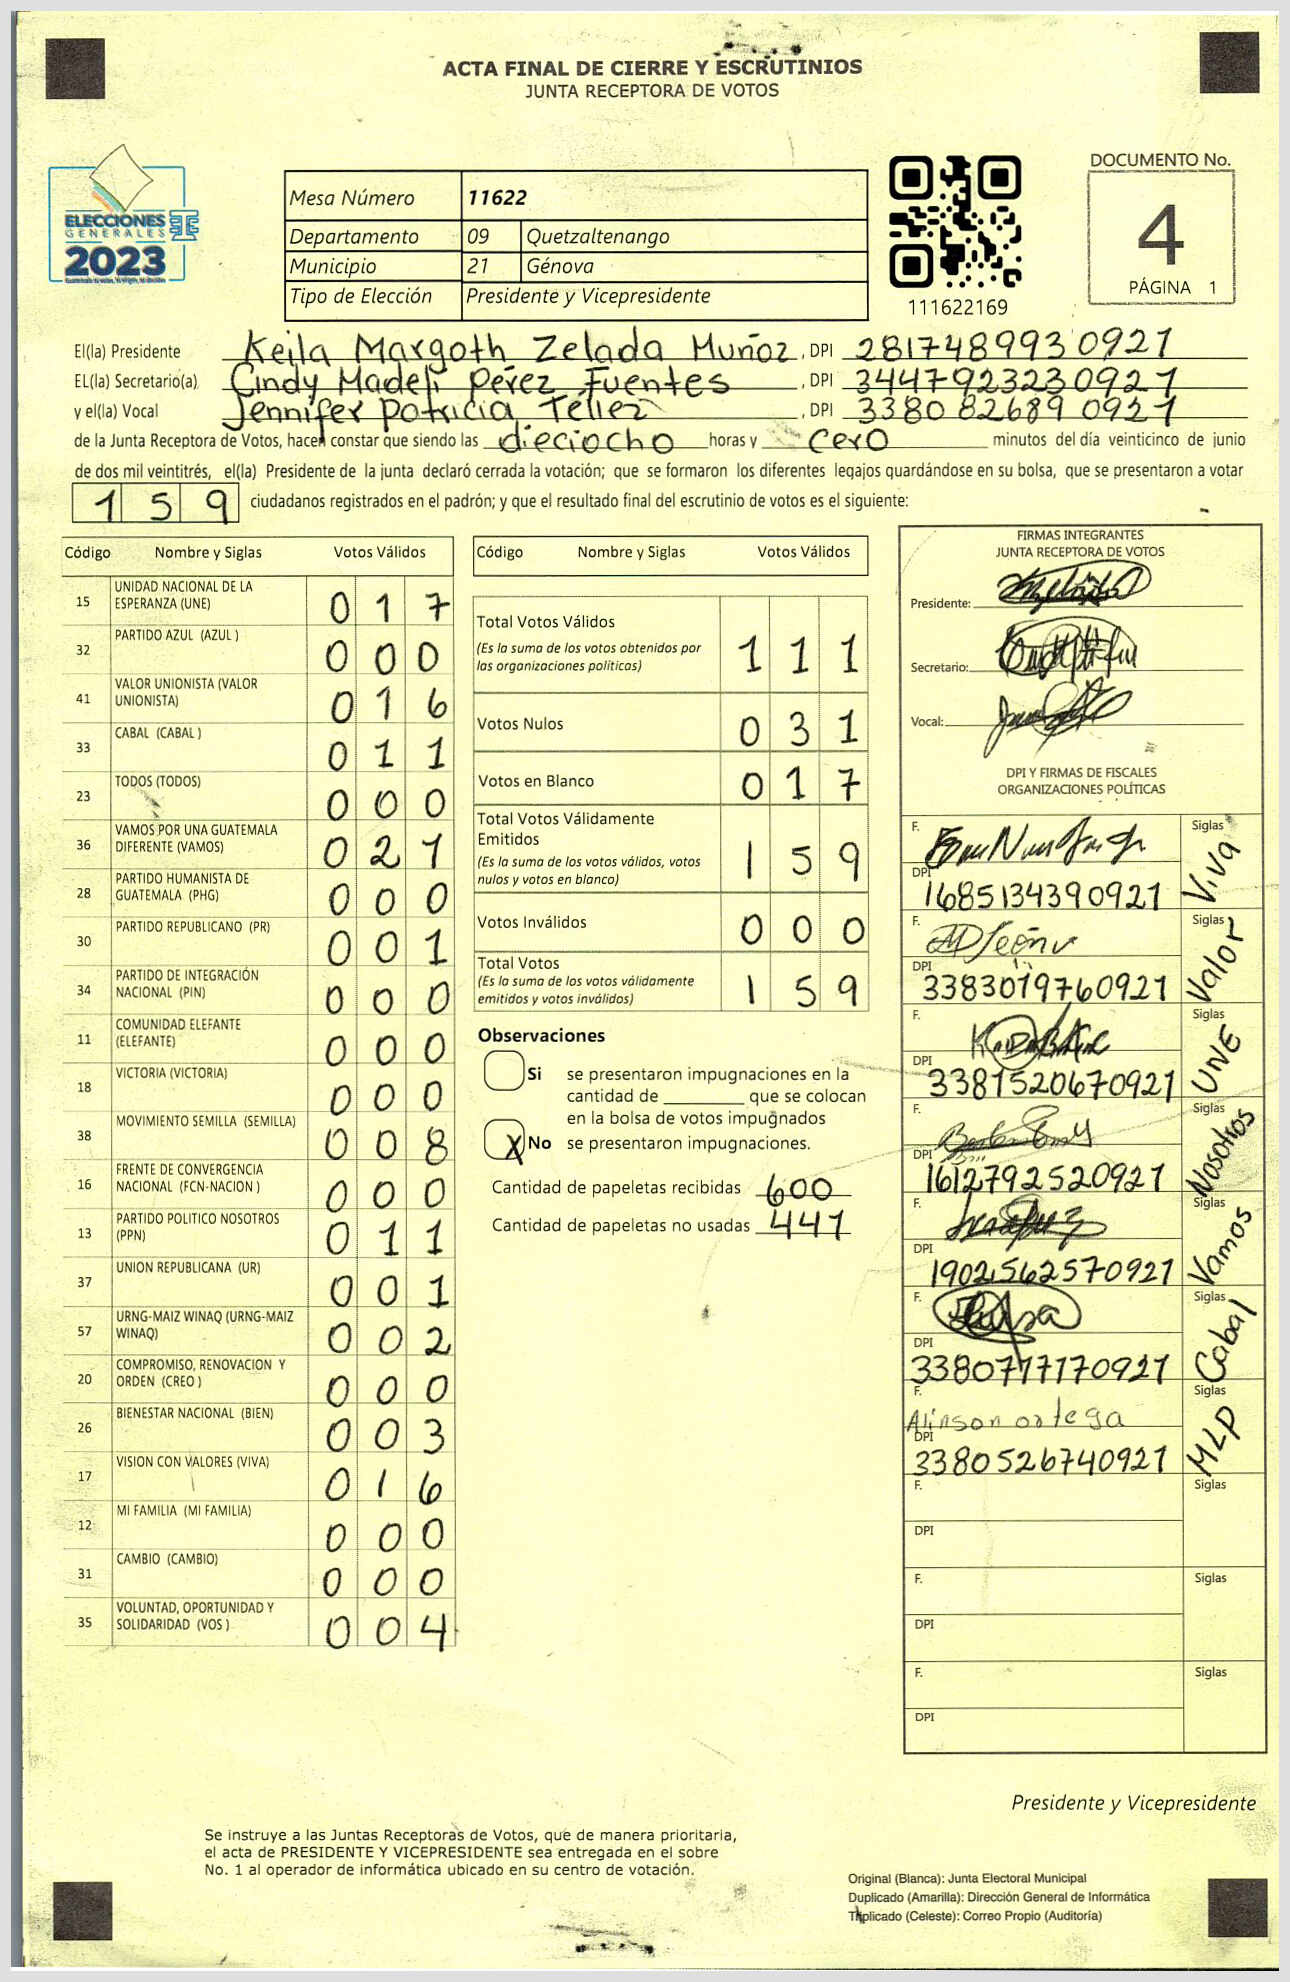 ACTA FINAL DE CIERRE Y ESCRUTINIOS
JUNTA RECEPTORA DE VOTOS
ELECCIONES
GENERALES
2023
Mesa Número 11622
Departamento 09 Quetzaltenango
Municipio 21 Génova
Tipo de Elección Presidente y Vicepresidente
111622169
DOCUMENTO No.
4
PÁGINA 1
El(la) Presidente Keila Margoth Zelada Muñoz, DPI 2817489930921
EL(la) Secretario(a) Cindy Madeli Pérez Fuentes, DPI 3447923230921
y el(la) Vocal Jennifer Patricia Téllez, DPI 3380826890921
de la Junta Receptora de Votos, hacen constar que siendo las dieciocho horas y cero minutos del día veinticinco de junio
de dos mil veintitrés, el(la) Presidente de la junta declaró cerrada la votación; que se formaron los diferentes legajos quardándose en su bolsa, que se presentaron a votar
159 ciudadanos registrados en el padrón; y que el resultado final del escrutinio de votos es el siguiente:
Código Nombre y Siglas Votos Válidos
15 UNIDAD NACIONAL DE LA ESPERANZA (UNE) 017
32 PARTIDO AZUL (AZUL ) 000
41 VALOR UNIONISTA (VALOR UNIONISTA) 016
33 CABAL (CABAL ) 011
23 TODOS (TODOS) 000
36 VAMOS POR UNA GUATEMALA DIFERENTE (VAMOS) 021
28 PARTIDO HUMANISTA DE GUATEMALA (PHG) 000
30 PARTIDO REPUBLICANO (PR) 001
34 PARTIDO DE INTEGRACIÓN NACIONAL (PIN) 000
11 COMUNIDAD ELEFANTE (ELEFANTE) 000
18 VICTORIA (VICTORIA) 000
38 MOVIMIENTO SEMILLA (SEMILLA) 008
16 FRENTE DE CONVERGENCIA NACIONAL (FCN-NACION ) 000
13 PARTIDO POLITICO NOSOTROS (PPN) 011
37 UNION REPUBLICANA (UR) 001
57 URNG-MAIZ WINAQ (URNG-MAIZ WINAQ) 002
20 COMPROMISO, RENOVACION Y ORDEN (CREO ) 000
26 BIENESTAR NACIONAL (BIEN) 003
17 VISION CON VALORES (VIVA) 016
12 MI FAMILIA (MI FAMILIA) 000
31 CAMBIO (CAMBIO) 000
35 VOLUNTAD, OPORTUNIDAD Y SOLIDARIDAD (VOS ) 004
Código Nombre y Siglas Votos Válidos
Total Votos Válidos 111
(Es la suma de los votos obtenidos por
las organizaciones políticas)
Votos Nulos 031
Votos en Blanco 017
Total Votos Válidamente
Emitidos 159
(Es la suma de los votos válidos, votos
nulos y votos en blanco)
Votos Inválidos 000
Total Votos 159
(Es la suma de los votos válidamente
emitidos y votos inválidos)
Observaciones
Si se presentaron impugnaciones en la
cantidad de ________ que se colocan
en la bolsa de votos impugnados
X No se presentaron impugnaciones.
Cantidad de papeletas recibidas 600
Cantidad de papeletas no usadas 441
FIRMAS INTEGRANTES
JUNTA RECEPTORA DE VOTOS
Presidente:
Secretario:
Vocal:
DPI Y FIRMAS DE FISCALES
ORGANIZACIONES POLÍTICAS
F. Siglas Viva
DPI 1685134390921
F. Siglas Valor
DPI 3383019760921
F. Siglas UNE
DPI 3381520670921
F. Siglas Nosotros
DPI 1612792520921
F. Siglas Vamos
DPI 1902562570921
F. Siglas Cabal
DPI 3380777170921
F. Alinson ortega Siglas MLP
DPI 3380526740921
F. Siglas
DPI
F. Siglas
DPI
F. Siglas
DPI
Presidente y Vicepresidente
Se instruye a las Juntas Receptoras de Votos, que de manera prioritaria,
el acta de PRESIDENTE Y VICEPRESIDENTE sea entregada en el sobre
No. 1 al operador de informática ubicado en su centro de votación.
Original (Blanca): Junta Electoral Municipal
Duplicado (Amarilla): Dirección General de Informática
Triplicado (Celeste): Correo Propio (Auditoría)